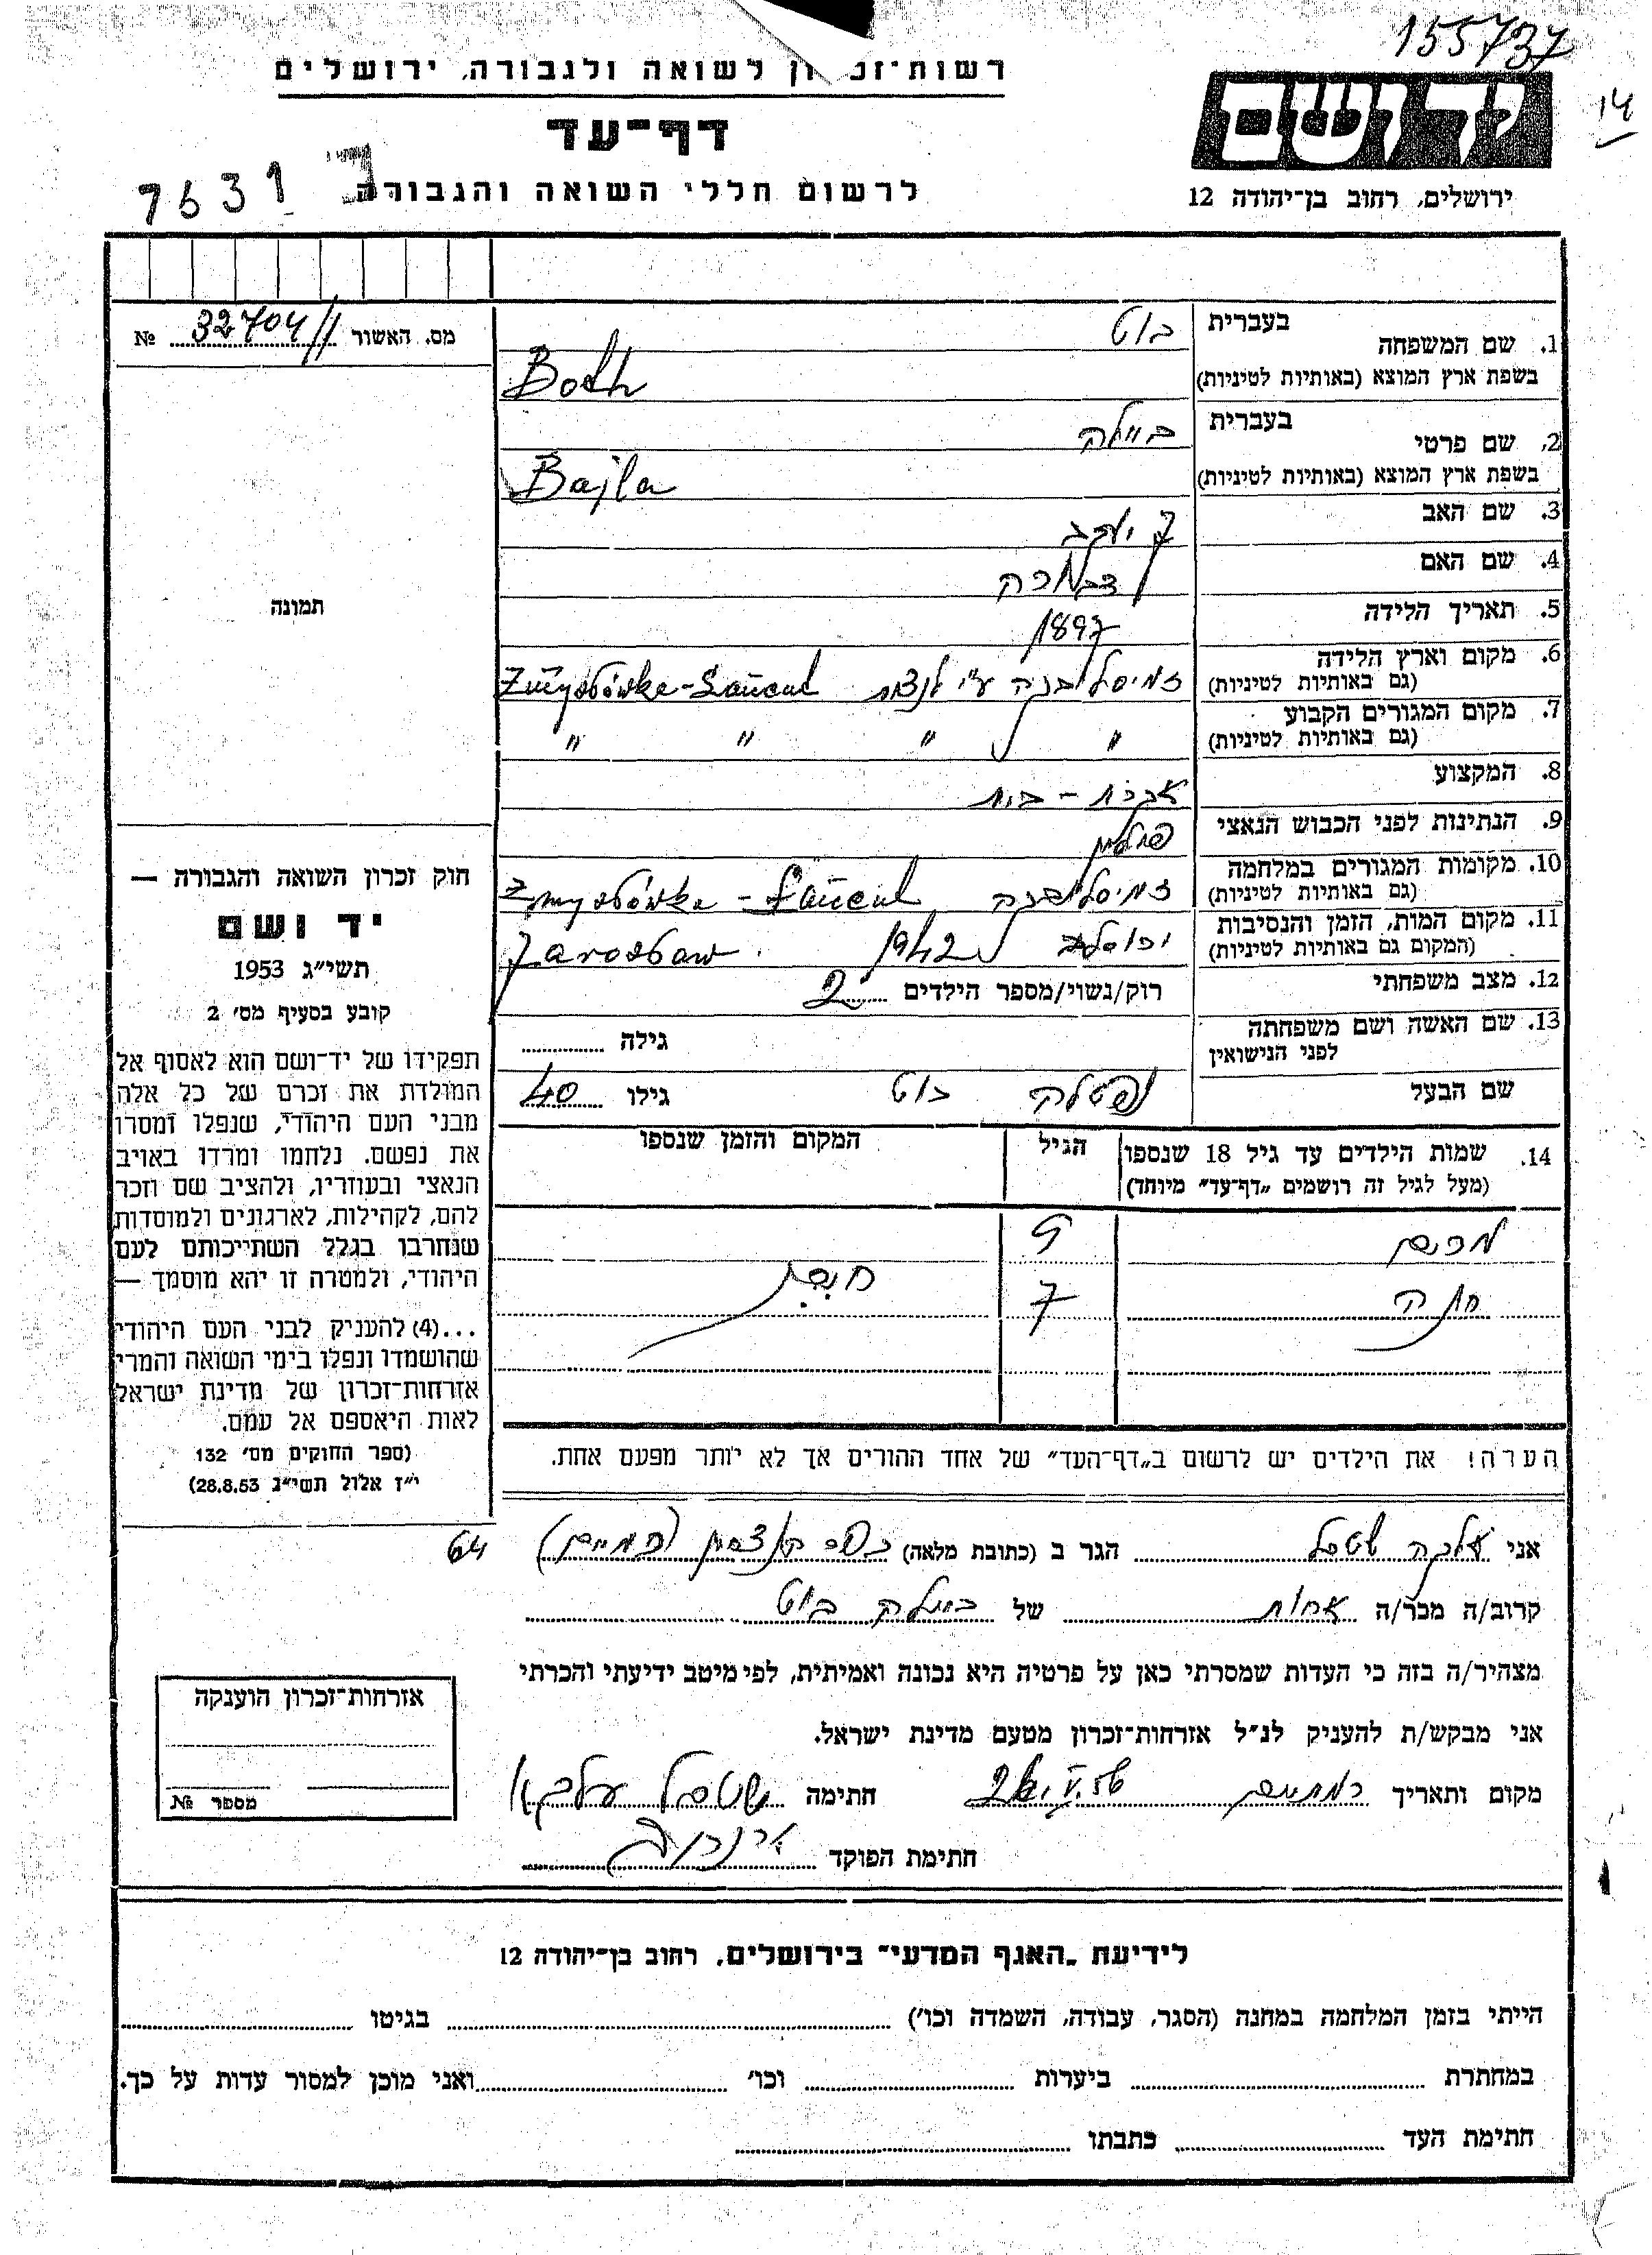 155737
14
רשות־זכ ון לשואה ולגבורה, ירושלים
דף־עד
לרשום חללי השואה והגבורה
7631
יד ושם
ירושלים, רחוב בן־יהודה 12
מס. האשור 32704 №
1. שם המשפחה בעברית בוט
בשפת ארץ המוצא (באותיות לטיניות) Both
2. שם פרטי בעברית ביילה
בשפת ארץ המוצא (באותיות לטיניות) Bajla
3. שם האב יעקב
4. שם האם
5. תאריך הלידה 1897
6. מקום וארץ הלידה
(גם באותיות לטיניות) Żmysłówka-Łańcut
7. מקום המגורים הקבוע
(גם באותיות לטיניות) " " " "
8. המקצוע עקרת - בית
9. הנתינות לפני הכבוש הנאצי פולנית
10. מקומות המגורים במלחמה
(גם באותיות לטיניות) Żmysłówka - Łańcut
11. מקום המות, הזמן והנסיבות
(המקום גם באותיות לטיניות) 1942 Jarosław
12. מצב משפחתי רוק/נשוי/מספר הילדים 2
13. שם האשה ושם משפחתה
לפני הנישואין גילה
שם הבעל נפטלי בוט גילו 40
14. שמות הילדים עד גיל 18 שנספו הגיל המקום והזמן שנספו
(מעל לגיל זה רושמים „דף־עד" מיוחד)
9
חנה 7
הערה! את הילדים יש לרשום ב„דף־העד" של אחד ההורים אך לא יותר מפעם אחת.
תמונה
חוק זכרון השואה והגבורה —
יד ושם
תשי"ג 1953
קובע בסעיף מס' 2
תפקידו של יד־ושם הוא לאסוף אל
המולדת את זכרם של כל אלה
מבני העם היהודי, שנפלו ומסרו
את נפשם. נלחמו ומרדו באויב
הנאצי ובעוזריו, ולהציב שם וזכר
להם, לקהילות, לארגונים ולמוסדות
שנחרבו בגלל השתייכותם לעם
היהודי, ולמטרה זו יהא מוסמך —
...(4) להעניק לבני העם היהודי
שהושמדו ונפלו בימי השואה והמרי
אזרחות־זכרון של מדינת ישראל
לאות היאספם אל עמם.
(ספר החוקים מס' 132
י"ז אלול תשי"ג 28.8.53)
אני הגר ב (כתובת מלאה) 64
קרוב/ה מכר/ה אחות של ביילה בוט
מצהיר/ה בזה כי העדות שמסרתי כאן על פרטיה היא נכונה ואמיתית, לפי מיטב ידיעתי והכרתי
אני מבקש/ת להעניק לנ"ל אזרחות־זכרון מטעם מדינת ישראל.
מקום ותאריך חתימה
חתימת הפוקד
אזרחות־זכרון הוענקה
מספר №
לידיעת „האגף המדעי" בירושלים, רחוב בן־יהודה 12
הייתי בזמן המלחמה במחנה (הסגר, עבודה, השמדה וכו') בגיטו
במחתרת ביערות וכו' ואני מוכן למסור עדות על כך.
חתימת העד כתבתו